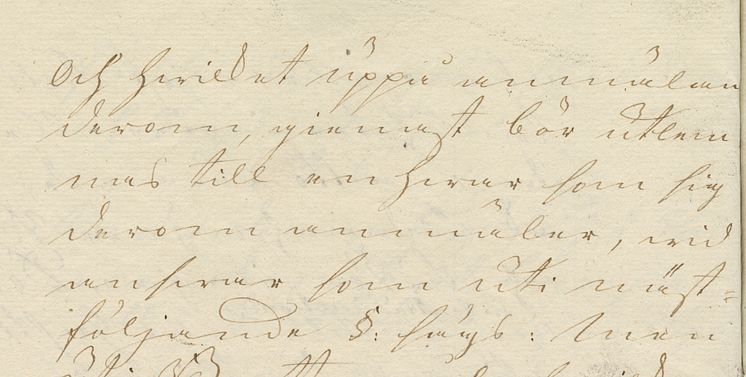 Och hwilket uppå anmälan
derom, genast bör utlem
nas till en hwar som sig
derom anmäler, wid
answar som uti näst=
följande §: säges: Men